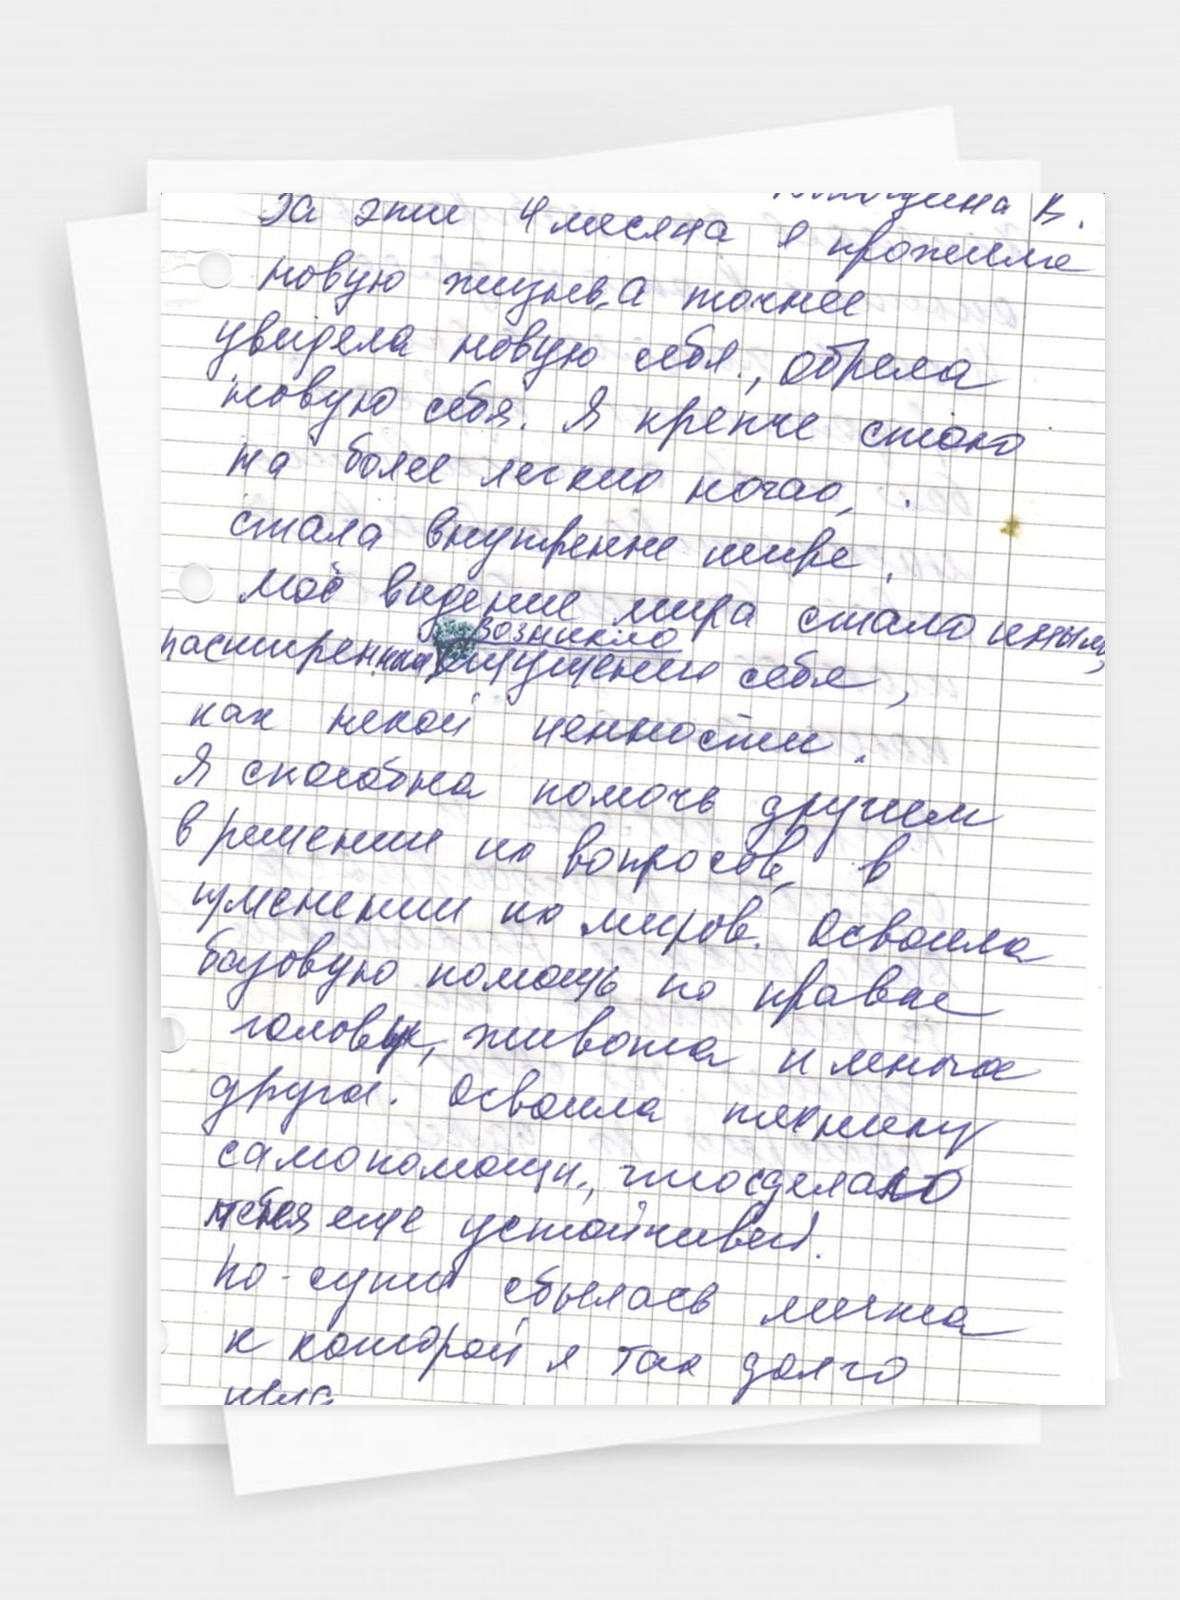 В.
За эти 4 месяца я прожила
новую жизнь, а точнее
увидела новую себя, обрела
новую себя. Я крепче стою
на более легких ногах,
стала внутренне шире.
Моё видение мира стало иным,
возникло
расширенным, ощущение себя,
как некой ценности.
Я способна помочь другим
в решении их вопросов, в
изменении их миров. Освоила
базовую помощь по правке
головы, живота и многое
другое. Освоила технику
самопомощи, что сделало
меня еще устойчивей.
По-сути сбылась мечта
к которой я так долго
шла